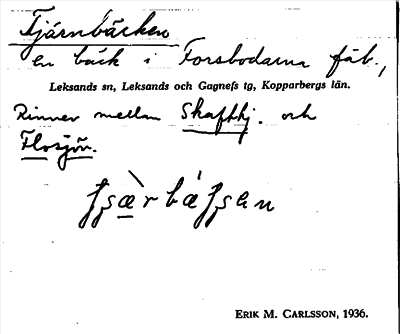 Tjärnbäcken
en bäck i Forsbodarna fäb.,
Leksands sn, Leksands och Gagnefs tg, Kopparbergs län.
Rinner mellan Skafttj. och
Flosjön.
ERIK M. CARLSSON, 1936.